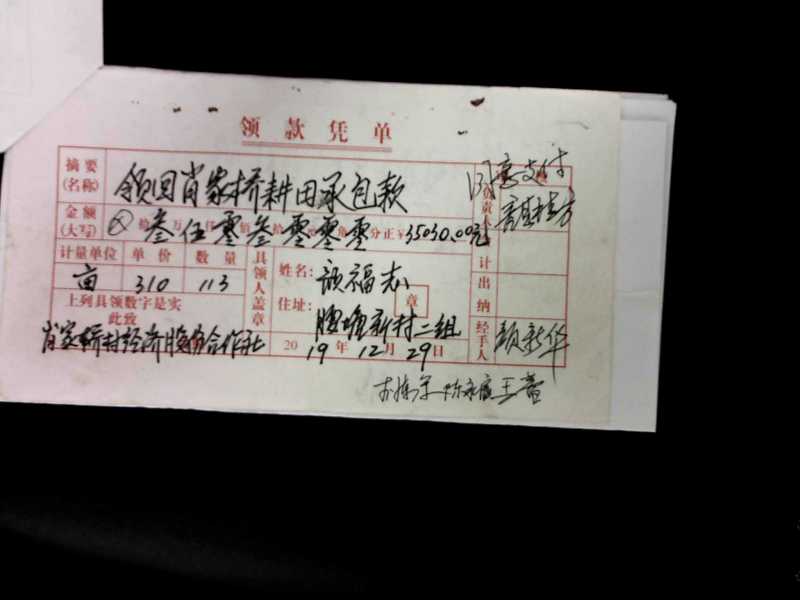 领款凭单
摘要(名称) 领回肖家桥耕田承包款
金额(大写) ⊗拾叁万伍仟零佰叁拾零元零角零分正¥35030.00元
计量单位 单价 数量 具领人盖章 姓名: 颜福志
亩 310 113 住址: 腰塘新村二组 章
上列具领数字是实
此致
肖家桥村经济股份合作社 2019年12月29日
负责人 同意支付
会计
出纳
经手人 颜新华
王萱